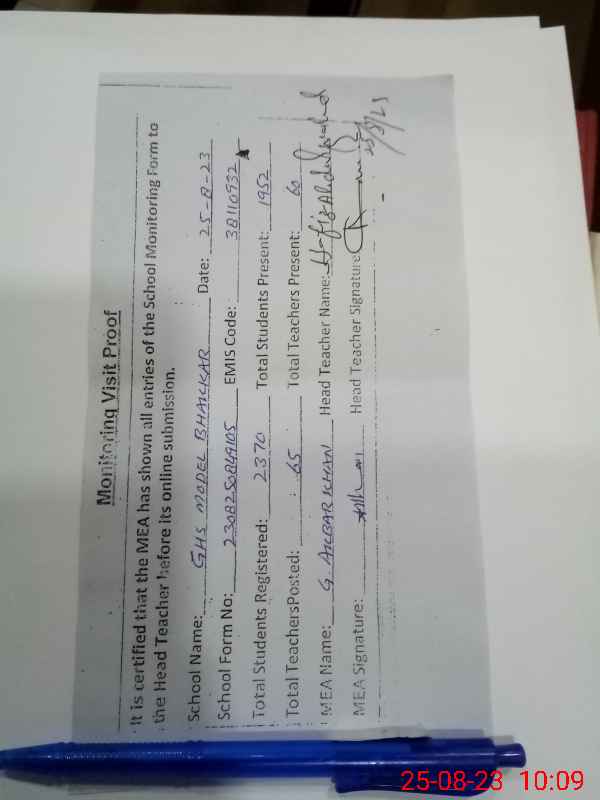 Monitoring Visit Proof
It is certified that the MEA has shown all entries of the School Monitoring Form to
the Head Teacher before its online submission.
School Name: GHS MODEL BHAKKAR Date: 25-8-23
School Form No: 2308250849105 EMIS Code: 38110932
Total Students Registered: 2370 Total Students Present: 1952
Total TeachersPosted: 65 Total Teachers Present: 60
MEA Name: G. AKBAR KHAN Head Teacher Name:
MEA Signature: Head Teacher Signature
25/8/23
25-08-23 10:09